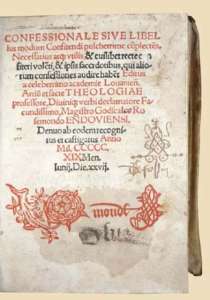 CONFESSIONALE SIVE LIBEL
lus modum Confitendi pulcherrime cõplectẽs,
Necessarius atq; vtilis & cuilibet recte cõ
fiteri volẽti, & ipsis sacerdotibus, qui alio-
rum confessiones audire habẽt Editus
a celeberrimo academie Louanien.
Artiũ et sacre THEOLOGIAE
professore, Diuiniq; verbi declamatore Fa
cundissimo, Magistro Godscalco Ro
semondo ENDOVIENSI.
Denuo ab eodem recogni-
tus et castigatus Anno
Md. CCCCC.
XIX Men.
Iunij, Die.xxvij.